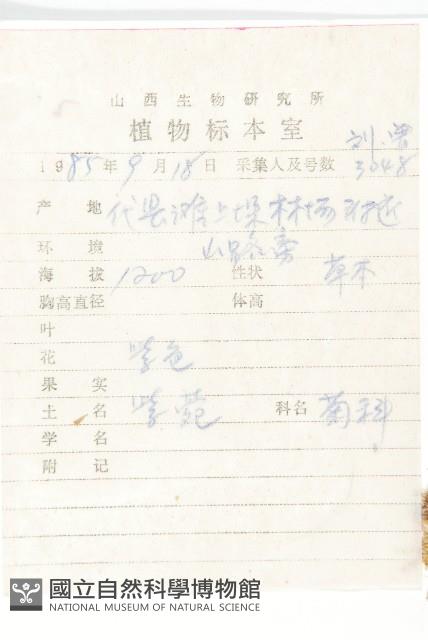 山西生物研究所
植物标本室
刘、曾
1985年9月18日 采集人及号数 3048
产地 代县滩上 林场附近
环境 山路旁
海拔 1200 性状 草本
胸高直径 体高
叶
花 紫色
果实
土名 紫菀 科名 菊科
学名
附记
國立自然科學博物館
NATIONAL MUSEUM OF NATURAL SCIENCE